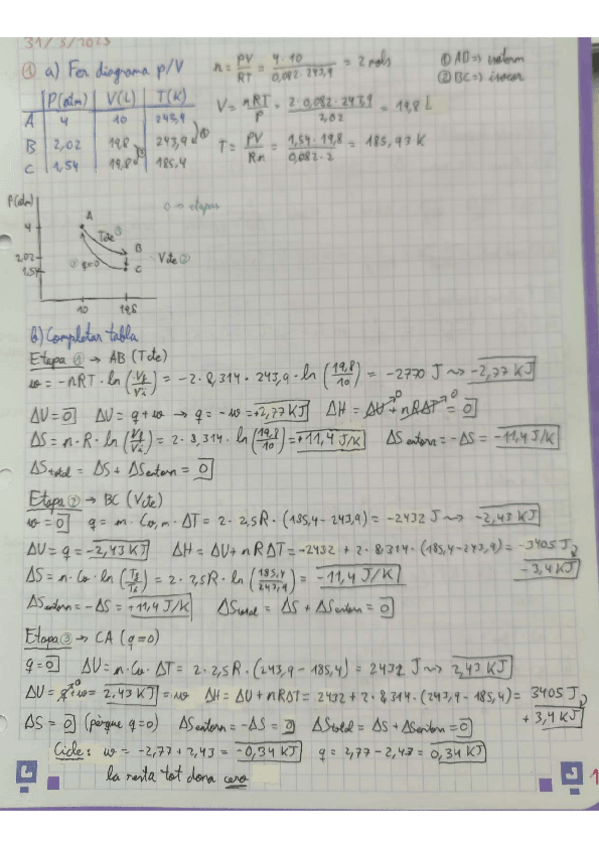 31/3/2023
① a) Fer diagrama p/V
n = PV/RT = 4·10/0,082·243,9 = 2 mols
① AB => isoterm
② BC => isocor
P(atm) V(L) T(K)
A 4 10 243,9
B 2,02 19,8 243,9
C 1,54 19,8 185,4
V = nRT/P = 2·0,082·243,9/2,02 = 19,8 L
T = PV/Rn = 1,54·19,8/0,082·2 = 185,93 K
P(atm)
4
2,02
1,54
A
B
C
Tcte ①
Vcte ②
③ q=0
0 → etapes
10 19,8
b) Completar tabla
Etapa ① → AB (Tcte)
w = -nRT · ln(Vf/Vi) = -2·8,314·243,9·ln(19,8/10) = -2770 J ⇝ -2,77 KJ
ΔU = 0 ΔU = q+w → q = -w = +2,77 KJ ΔH = ΔU + nRΔT = 0
ΔS = n·R·ln(Vf/Vi) = 2·8,314·ln(19,8/10) = +11,4 J/K ΔSentorn = -ΔS = -11,4 J/K
ΔStotal = ΔS + ΔSentorn = 0
Etapa ② → BC (Vcte)
w = 0 q = m·Cv,m·ΔT = 2·2,5R·(185,4-243,9) = -2432 J ⇝ -2,43 KJ
ΔU = q = -2,43 KJ ΔH = ΔU + nRΔT = -2432 + 2·8,314·(185,4-243,9) = -3405 J
-3,4 KJ
ΔS = n·Cv·ln(Tf/Ti) = 2·2,5R·ln(185,4/243,9) = -11,4 J/K
ΔSentorn = -ΔS = +11,4 J/K ΔStotal = ΔS + ΔSentorn = 0
Etapa ③ → CA (q=0)
q = 0 ΔU = n·Cv·ΔT = 2·2,5R·(243,9-185,4) = 2432 J ⇝ 2,43 KJ
ΔU = q+w = 2,43 KJ = w ΔH = ΔU + nRΔT = 2432 + 2·8,314·(243,9-185,4) = 3405 J
+3,4 KJ
ΔS = 0 (perque q=0) ΔSentorn = -ΔS = 0 ΔStotal = ΔS + ΔSentorn = 0
Cicle: w = -2,77+2,43 = -0,34 KJ q = 2,77-2,43 = 0,34 KJ
la resta tot dona cero
1